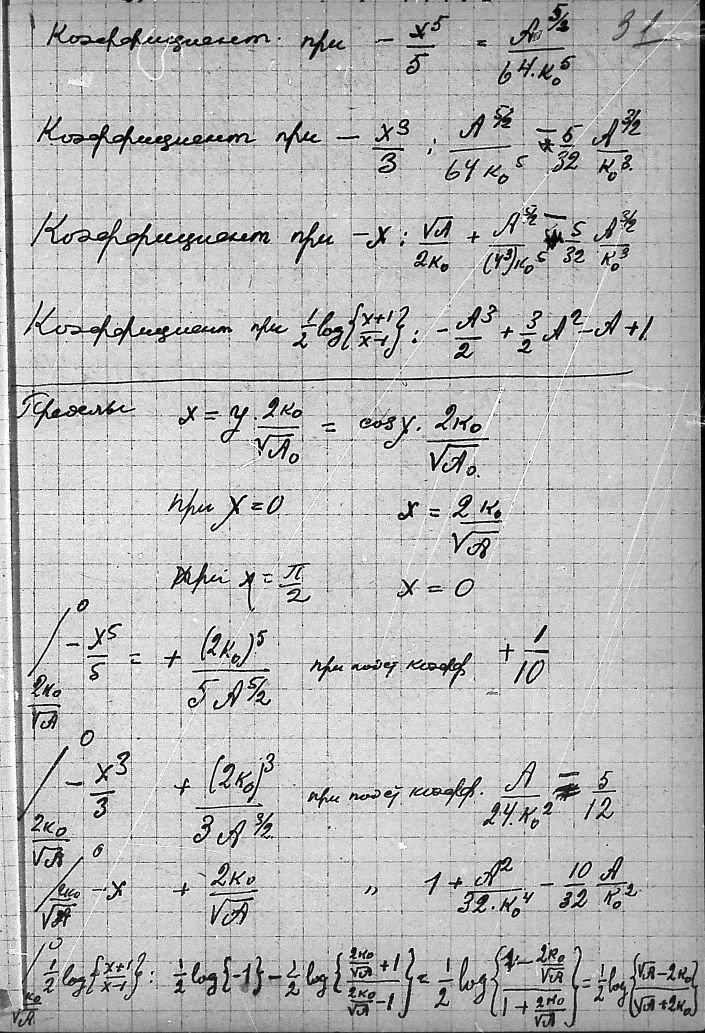 31
Коэффициент при − x⁵/5 = A^5/2 / 64·к₀⁵
Коэффициент при − x³/3 : A^5/2 / 64 к₀⁵ − 5/32 A^3/2 / к₀³
Коэффициент при −x : √A / 2к₀ + A^5/2 / (4³)к₀⁵ − 5/32 A^3/2 / к₀³
Коэффициент при 1/2 log{x+1 / x−1} : − A³/2 + 3/2 A² − A + 1.
Пределы x = y · 2к₀/√A₀ = cos χ · 2к₀/√A₀
при χ = 0 x = 2к₀/√A
при χ = π/2 x = 0
/ 0 2к₀/√A − x⁵/5 = + (2к₀)⁵ / 5 A^5/2 при подст коэфф + 1/10
/ 0 2к₀/√A − x³/3 + (2к₀)³ / 3 A^3/2 при подст коэфф. A / 24·к₀² − 5/12
/ 0 2к₀/√A − x + 2к₀/√A „ 1 + A² / 32·к₀⁴ − 10/32 A/к₀²
/ 0 к₀/√A 1/2 log{x+1 / x−1} : 1/2 log{−1} − 1/2 log{2к₀/√A + 1 / 2к₀/√A − 1} = 1/2 log{1 − 2к₀/√A / 1 + 2к₀/√A} = 1/2 log{√A − 2к₀ / √A + 2к₀}